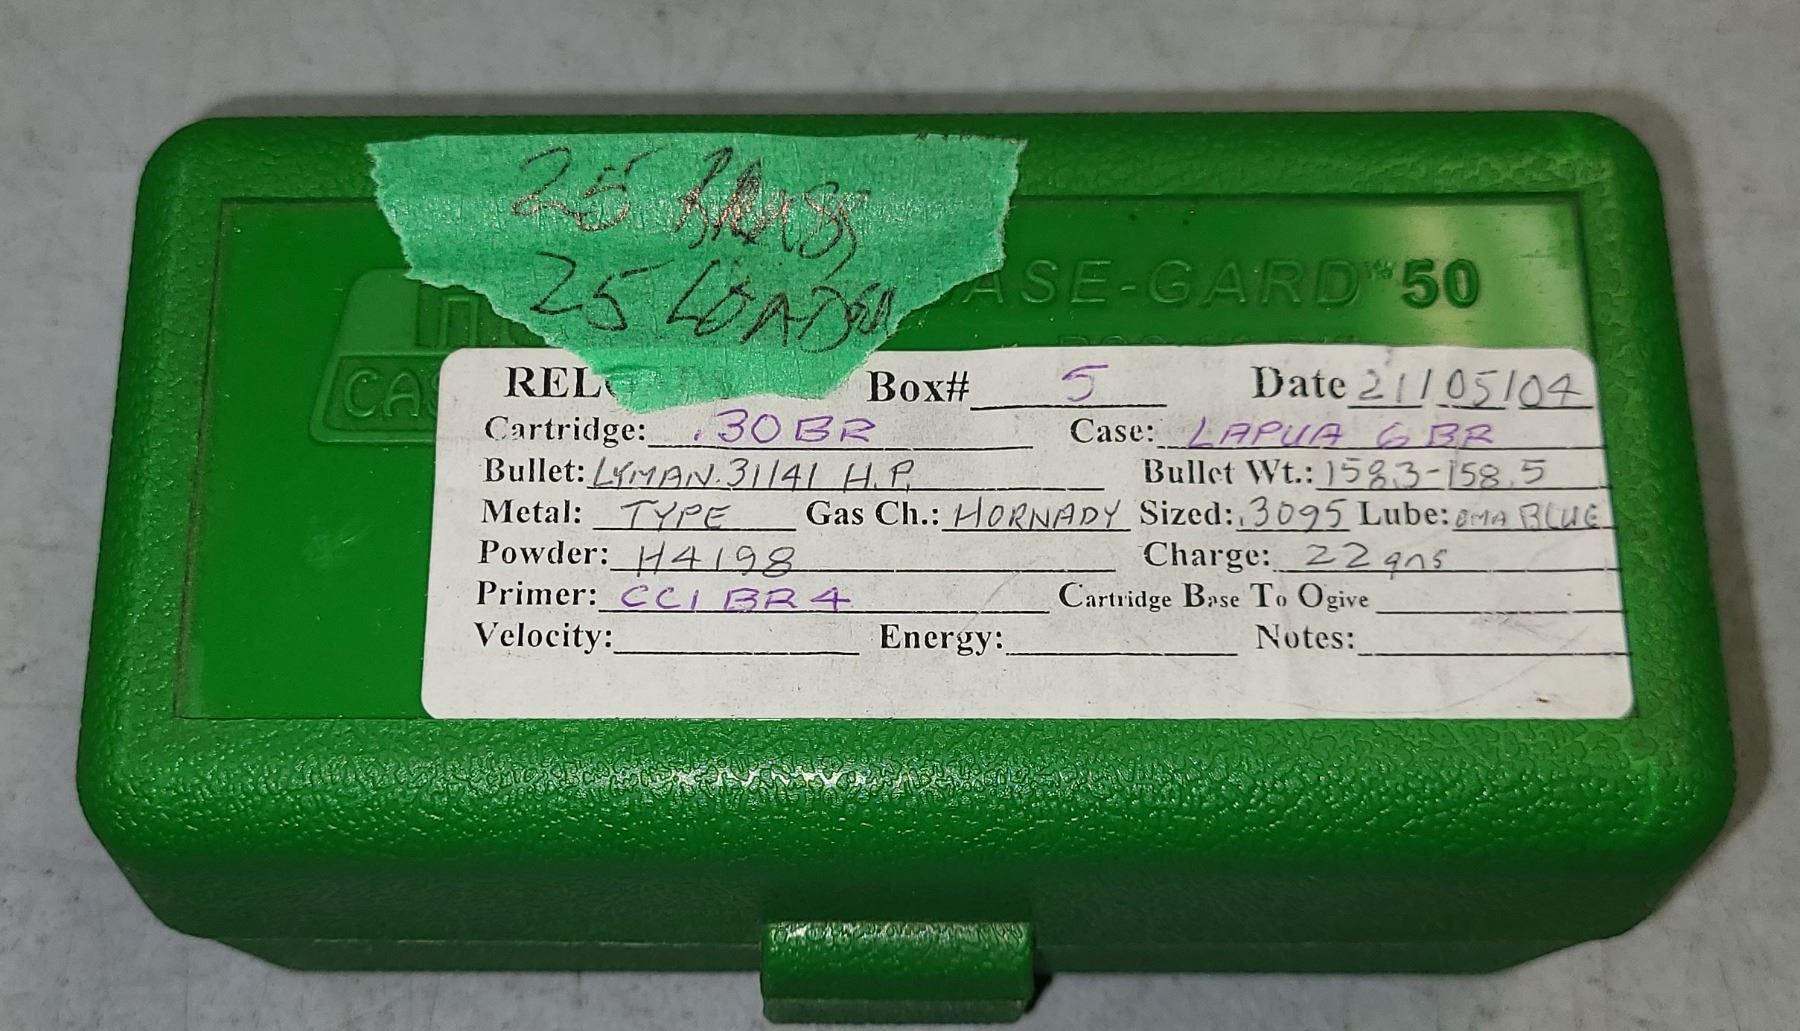 25 BRASS
25 LOADED
ASE-GARD™ 50
CAS
REL Box# 5 Date 21/05/04
Cartridge: .30 BR Case: LAPUA 6 BR
Bullet: LYMAN.31141 H.P. Bullet Wt.: 158.3-158.5
Metal: TYPE Gas Ch.: HORNADY Sized: .3095 Lube: BLUE
Powder: H4198 Charge: 22 gns
Primer: CCI BR4 Cartridge Base To Ogive
Velocity: Energy: Notes: